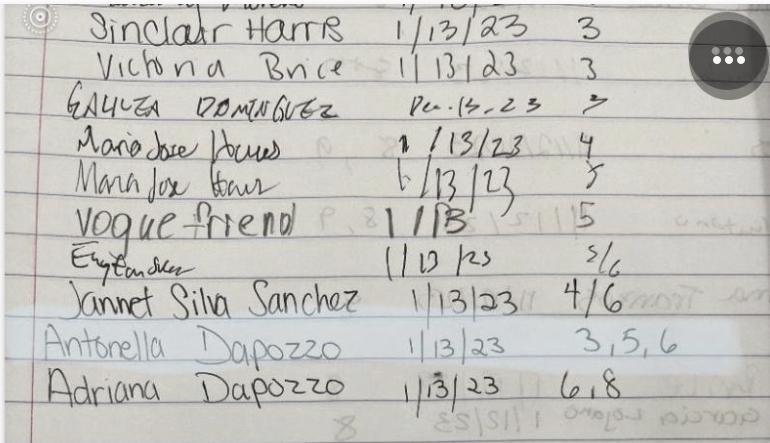 Sinclair Harris 1/13/23 3
Victoria Brice 1/13/23 3
GALILEA DOMINGUEZ 13.23 3
Maria Jose 1/13/23 4
Maria Jose 1/13/23
vogue friend 1/13 5
1/13/23 5/6
Jannet Silva Sanchez 1/13/23 4/6
Antonella Dapozzo 1/13/23 3,5,6
Adriana Dapozzo 1/13/23 6,8